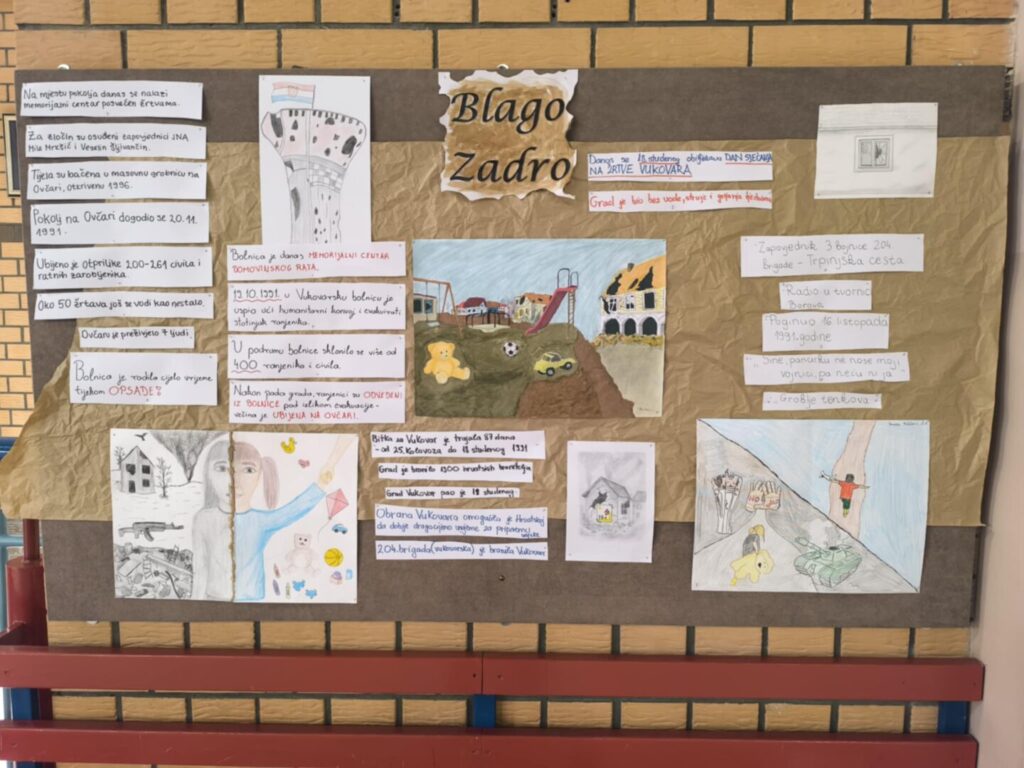 Na mjestu pokolja danas se nalazi
memorijalni centar posvećen žrtvama.
Za zločin su osuđeni zapovjednici JNA
Mile Mrkšić i Veselin Šljivančin.
Tijela su bačena u masovnu grobnicu na
Ovčari, otkrivenu 1996.
Pokolj na Ovčari dogodio se 20.11.
1991.
Ubijeno je otprilike 200-261 civila i
ratnih zarobljenika.
Oko 50 žrtava još se vodi kao nestalo.
Ovčaru je preživjelo 7 ljudi.
Bolnica je radila cijelo vrijeme
tijekom OPSADE
Bolnica je danas MEMORIJALNI CENTAR
DOMOVINSKOG RATA.
19.10.1991. u Vukovarsku bolnicu je
uspio ući humanitarni konvoj i evakuirati
stotinjak ranjenika.
U podrumu bolnice sklonilo se više od
400 ranjenika i civila.
Nakon pada grada, ranjenici su ODVEDENI
IZ BOLNICE pod izlikom evakuacije-
većina je UBIJENA NA OVČARI.
Blago
Zadro
Danas se 18. studenog obilježava DAN SJEĆANJA
NA ŽRTVE VUKOVARA
Grad je bio bez vode, struje i grijanja
Zapovjednik 3 bojnice 204.
brigade - Trpinjska cesta
Radio u tvornici
Borovo
Poginuo 16 listopada
1991. godine
Sine, pancirku ne nose moji
vojnici, pa neću ni ja
"Groblje tenkova"
Bitka za Vukovar je trajala 87 dana
- od 25. kolovoza do 18 studenog 1991
Grad je branilo 1800 hrvatskih branitelja
Grad Vukovar pao je 18 studenog
Obrana Vukovara omogućila je Hrvatskoj
da dobije dragocijeno vrijeme za pripremu
204. brigada (vukovarska) je branila Vukovar
NO